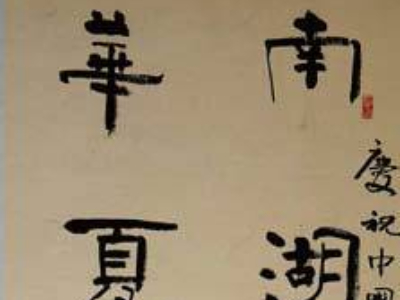 慶祝中國
南湖
華夏